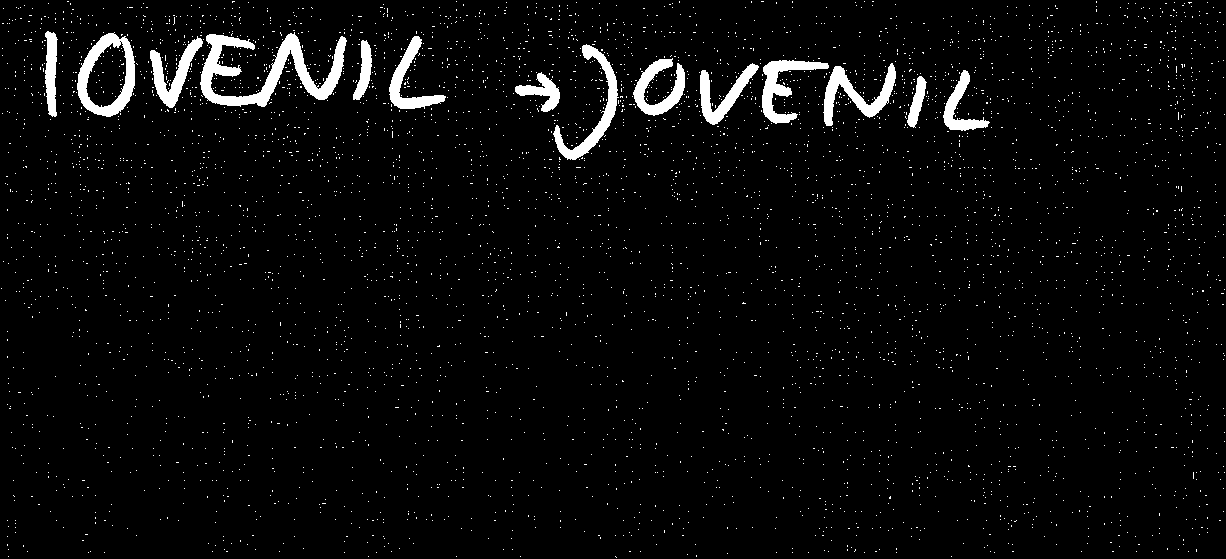 IOVENIL → JOVENIL